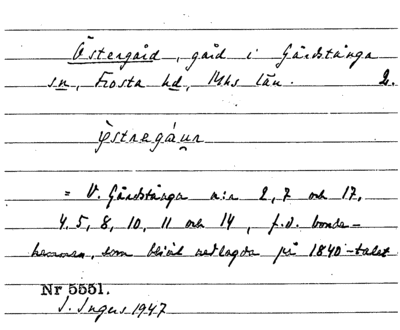 Östergård, gård i Gårdstånga
sn, Frosta hd, Mhs län. 2.
östregáʊn
= V. Gårdstånga n:r 2, 7 och 17,
4, 5, 8, 10, 11 och 14, f.d. bonde-
hemman, som blivit nedlagda på 1840-talet
Nr 5551.
I. Ingers 1947